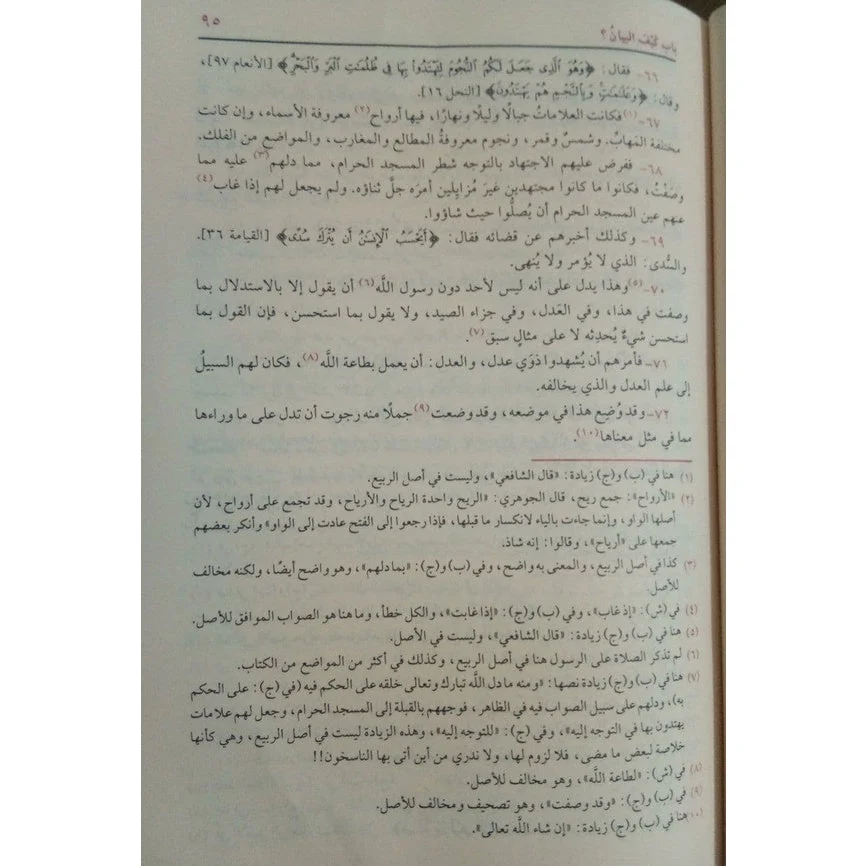 باب كَيْفَ البيانُ ؟ ٩٥
٦٦- فقال: ﴿وَهُوَ ٱلَّذِى جَعَلَ لَكُمُ ٱلنُّجُومَ لِتَهْتَدُوا۟ بِهَا فِى ظُلُمَٰتِ ٱلْبَرِّ وَٱلْبَحْرِ﴾ [الأنعام ٩٧]،
وقال: ﴿وَعَلَٰمَٰتٍ وَبِٱلنَّجْمِ هُمْ يَهْتَدُونَ﴾ [النحل ١٦].
٦٧- (١)فكانت العلاماتُ جبالًا وليلًا ونهارًا، فيها أرواح(٢) معروفة الأسماء، وإن كانت
مختلفة المَهابِّ. وشمسٌ وقمر، ونجوم معروفةُ المطالع والمغارب، والمواضع من الفلك.
٦٨- ففرض عليهم الاجتهاد بالتوجه شطر المسجد الحرام، مما دلهم(٣) عليه مما
وصَفْتُ، فكانوا ما كانوا مجتهدين غيرَ مُزايِلين أمرَه جلَّ ثناؤه. ولم يجعل لهم إذا غاب(٤)
عنهم عين المسجد الحرام أن يُصلُّوا حيث شاؤوا.
٦٩- وكذلك أخبرهم عن قضائه فقال: ﴿أَيَحْسَبُ ٱلْإِنسَٰنُ أَن يُتْرَكَ سُدًى﴾ [القيامة ٣٦].
والسُّدى: الذي لا يُؤمر ولا يُنهى.
٧٠-(٥)وهذا يدل على أنه ليس لأحد دون رسول اللَّه(٦) أن يقول إلا بالاستدلال بما
وصفت في هذا، وفي العَدل، وفي جزاء الصيد، ولا يقول بما استحسن، فإن القول بما
استحسن شيءٌ يُحدِثه لا على مثالٍ سبق(٧).
٧١- فأمرهم أن يُشهدوا ذَوَي عدل، والعدل: أن يعمل بطاعة اللَّه(٨)، فكان لهم السبيلُ
إلى علم العدل والذي يخالفه.
٧٢- وقد وُضِع هذا في موضعه، وقد وضعت(٩) جملًا منه رجوت أن تدل على ما وراءها
مما في مثل معناها(١٠).
(١) هنا في (ب) و(ج) زيادة: «قال الشافعي»، وليست في أصل الربيع.
(٢) «الأرواح»: جمع ريح، قال الجوهري: «الريح واحدة الرياح والأرياح، وقد تجمع على أرواح، لأن
أصلها الواو، وإنما جاءت بالياء لانكسار ما قبلها، فإذا رجعوا إلى الفتح عادت إلى الواو» وأنكر بعضهم
جمعها على «أرياح»، وقالوا: إنه شاذ.
(٣) كذا في أصل الربيع، والمعنى به واضح، وفي (ب) و(ج): «بما دلهم»، وهو واضح أيضًا، ولكنه مخالف
للأصل.
(٤) في (ش): «إذ غاب»، وفي (ب) و(ج): «إذا غابت»، والكل خطأ، وما هنا هو الصواب الموافق للأصل.
(٥) هنا في (ب) و(ج) زيادة: «قال الشافعي»، وليست في الأصل.
(٦) لم تذكر الصلاة على الرسول هنا في أصل الربيع، وكذلك في أكثر من المواضع من الكتاب.
(٧) هنا في (ب) و(ج) زيادة نصها: «ومنه ما دل اللَّه تبارك وتعالى خلقه على الحكم فيه (في (ج): على الحكم
به)، ودلهم على سبيل الصواب فيه في الظاهر، فوجههم بالقبلة إلى المسجد الحرام، وجعل لهم علامات
يهتدون بها في التوجه إليه»، وفي (ج): «للتوجه إليه»، وهذه الزيادة ليست في أصل الربيع، وهي كأنها
خلاصة لبعض ما مضى، فلا لزوم لها، ولا ندري من أين أتى بها الناسخون!!
(٨) في (ش): «لطاعة اللَّه»، وهو مخالف للأصل.
(٩) في (ب) و(ج): «وقد وصفت»، وهو تصحيف ومخالف للأصل.
(١٠) هنا في (ب) و(ج) زيادة: «إن شاء اللَّه تعالى».